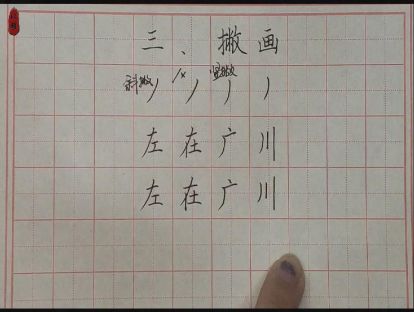 三、撇画
斜撇 竖撇
左在广川
左在广川